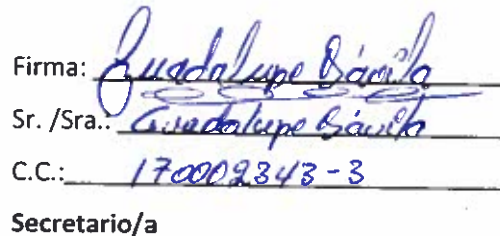 Firma: Guadalupe Dávila
Sr. /Sra.: Guadalupe Dávila
C.C.: 170002343-3
Secretario/a